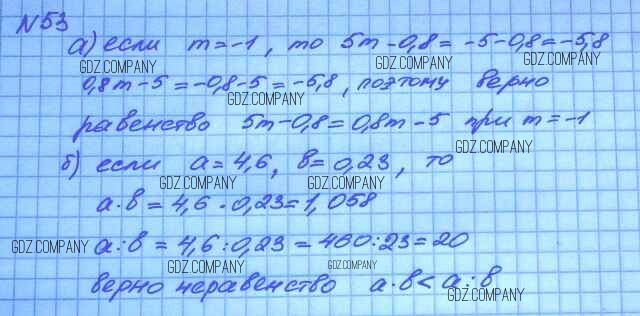 №53
а) если m = -1, то 5m - 0,8 = -5 - 0,8 = -5,8
GDZ.COMPANY GDZ.COMPANY GDZ.COMPANY
0,8m - 5 = -0,8 - 5 = -5,8, поэтому верно
GDZ.COMPANY
равенство 5m - 0,8 = 0,8m - 5 при m = -1
GDZ.COMPANY
б) если a = 4,6, b = 0,23, то
GDZ.COMPANY GDZ.COMPANY
a · b = 4,6 · 0,23 = 1,058
GDZ.COMPANY a : b = 4,6 : 0,23 = 460 : 23 = 20
GDZ.COMPANY GDZ.COMPANY
верно неравенство a · b < a : b
GDZ.COMPANY